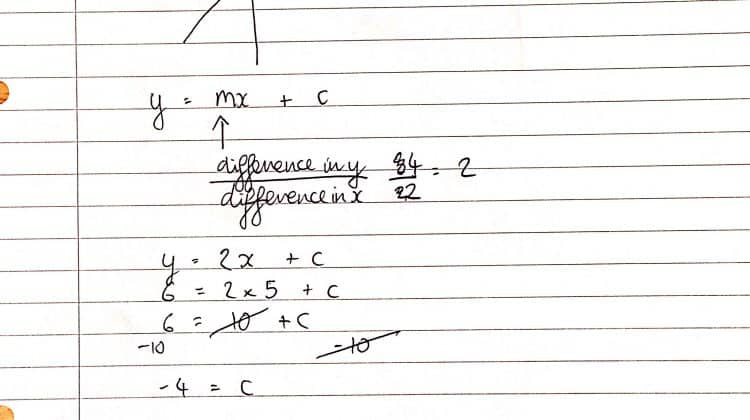 y = mx + c
↑
difference in y = 2
difference in x
y = 2x + c
6 = 2 × 5 + c
6 = 10 + c
-10 -10
-4 = c